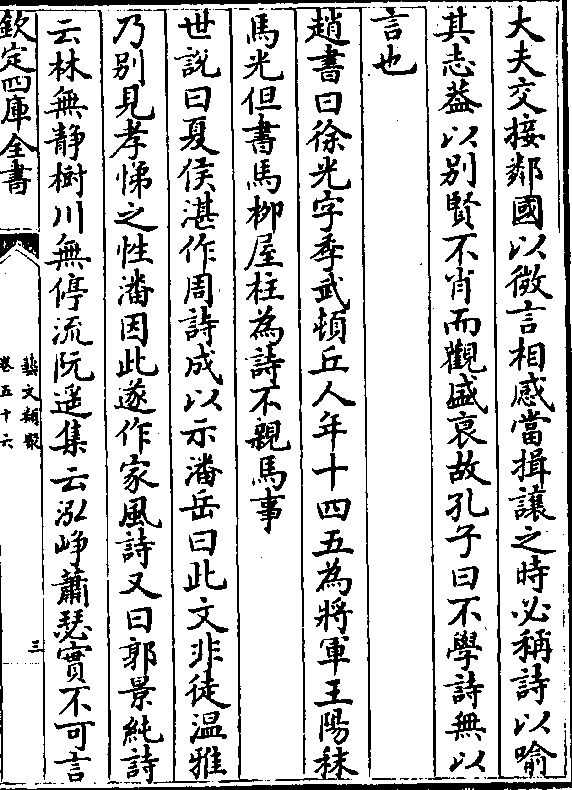 大夫交接鄰國以微言相感當揖讓之時必稱詩以喻
其志葢以别賢不肖而觀盛衰故孔子曰不學詩無以
言也
趙書曰徐光字季武頓丘人年十四五為將軍王陽秣
馬光但書馬柳屋柱為詩不親馬事
世説曰夏侯湛作周詩成以示潘岳曰此文非徒温雅
乃别見孝悌之性潘因此遂作家風詩又曰郭景純詩
云林無静樹川無停流阮遥集云泓峥蕭瑟實不可言
欽定四庫全書
藝文類聚
卷五十六
三